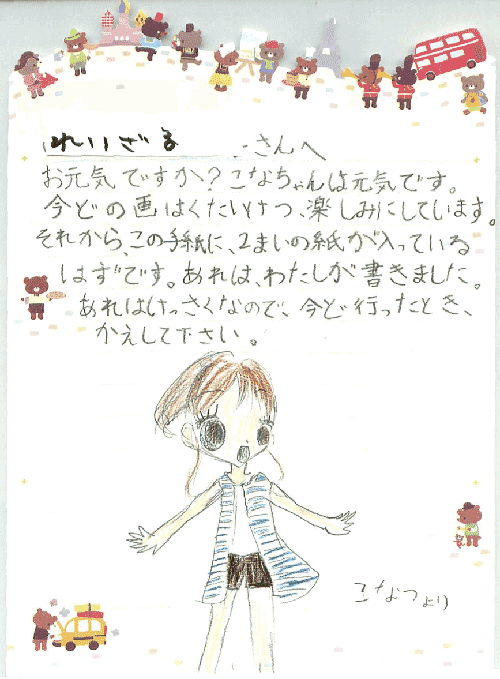 れいざる さんへ
お元気ですか？こなちゃんは元気です。
今どの画はくたいけつ、楽しみにしています。
それから、この手紙に、2まいの紙が入っている
はずです。あれは、わたしが書きました。
あれはけっさくなので、今ど行ったとき、
かえして下さい。
こなつより